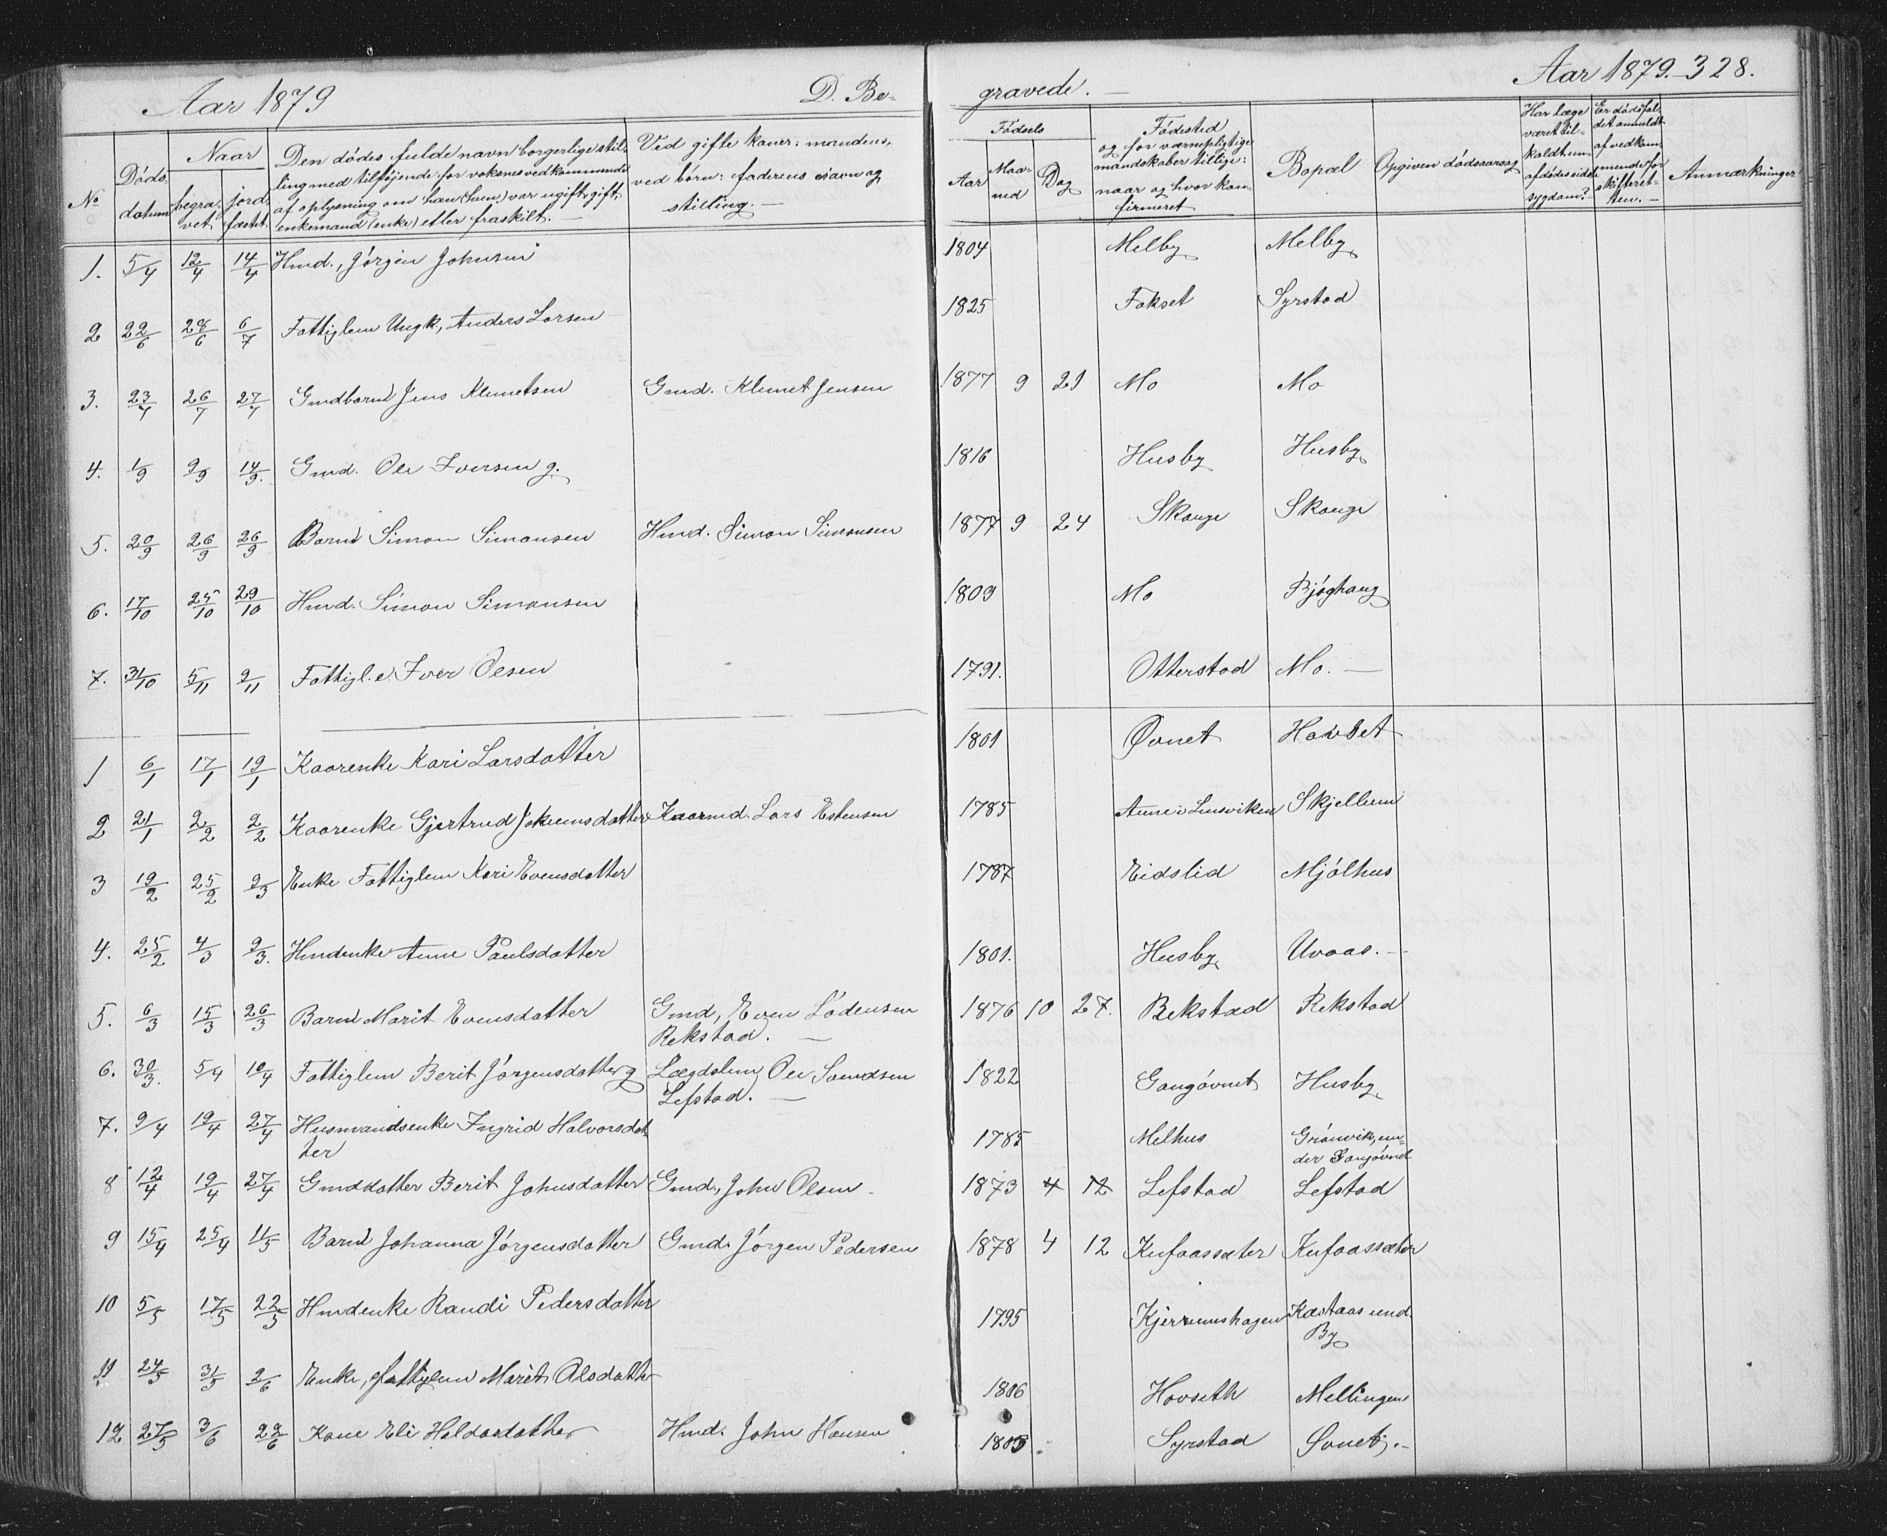 Aar 1879 D. Be- gravede. Aar 1879. 328.
No Døds datum Naar begra- vet jord- fæstet Den dødes fulde navn borgerlige stil- ling med tilføjende for voksnes vedkommende af oplysning om han (hun) var ugift, gift, enkemand (enke) eller fraskilt. Ved gifte koner: mandens, ved børn: faderens navn og stilling. Fødsels Aar Maa- ned Dag Fødested og for værnepligtige mandskaber tillige: naar og hvor kon- firmeret Bopæl Opgiven dødsaarsag Har læge været til- kaldt un- afdødes sidste sygdom? Er dødsfal- det anmeldt af vedkom- mende for skifteret- ten. Anmærkninger
1. 5/4 12/4 14/4 Hmd., Jørgen Johnsen 1804 Melby Melby
2 22/6 28/6 6/7 Fattiglem Ungk, Anders Larsen 1825 Fokset Syrstad
3. 23/7 26/7 27/7 Gmdbarn Jens Klemetsen Gmd. Klemet Jensen 1877 9 21 Mo Mo
4. 1/9 9/9 14/9. Gmd. Ole Iversen g. 1816 Husby Husby
5. 20/9 26/9 26/9 Barn Simon Simonsen Hmd. Simon Simonsen 1877 9 24 Skauge Skauge
6. 17/10 25/10 29/10 Hmd. Simon Simonsen 1809 Mo Bjøghaug
7. 31/10 5/11 9/11 Fattigl. e. Iver Olsen 1791. Otterstad Mo. —
1 6/1 17/1 19/1 Kaarenke Kari Larsdatter 1801 Øvnet Hovset
2 21/1 2/2 2/2 Kaarenke Gjertrud Jokumsdatter Kaarmd. Lars Estensen 1785 Anne i Lensviken Skjellum
3 19/2 25/2 9/3 Enke Fattiglem Kari Evensdatter 1787 Eidslid Mjølhus
4. 25/2 4/3 9/3. Hmdenke Anne Paulsdatter 1801. Husby Uvaas. —
5. 6/3 15/3 26/3 Barn Marit Evensdatter Gmd, Even Lodensen
Rekstad. — 1876 10 27. Rekstad Rekstad
6. 30/3. 5/4 10/4 Fattiglem Berit Jørgensdatter g Lægdslem Ole Svendsen
Lefstad. — 1822 Gangøvnet Husby
7. 9/4 19/4 27/4 Husmandsenke Ingrid Halvorsdat-
ter 1785 Melhus Grønvik, un-
der Gangøvnet
8 12/4 19/4 27/4 Gmddatter Berit Johnsdatter Gmd, John Olsen. 1873 4 12 Lefstad Lefstad
9 15/4 25/4 11/5 Barn Johanna Jørgensdatter Gmd. Jørgen Pedersen 1878 4 12 Kufaassæter Kufaassæter
10 5/5 17/5 22/5 Hmdenke Randi Pedersdatter 1795 Kjerremshagen Kastaas und.
By
11 24/5 31/5 2/6 Enke, fattiglem Marit Olsdatter 1806 Hovseth Mellingen
12 27/5 3/6 22/6 Kone Eli Haldosdatter Hmd. John Hansen Syrstad Øvnet. —